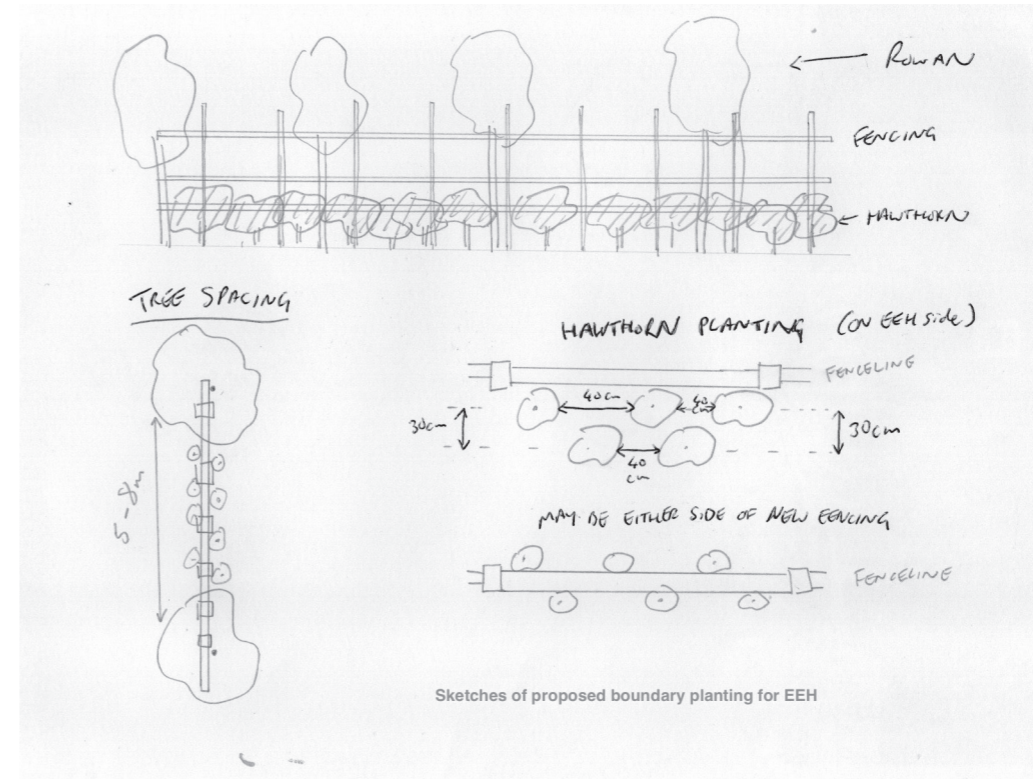 ROWAN
FENCING
HAWTHORN
TREE SPACING
HAWTHORN PLANTING (ON EEH side)
FENCELINE
40cm
40
cm
30cm
30cm
40
cm
5-8m
MAY BE EITHER SIDE OF NEW FENCING
FENCELINE
Sketches of proposed boundary planting for EEH